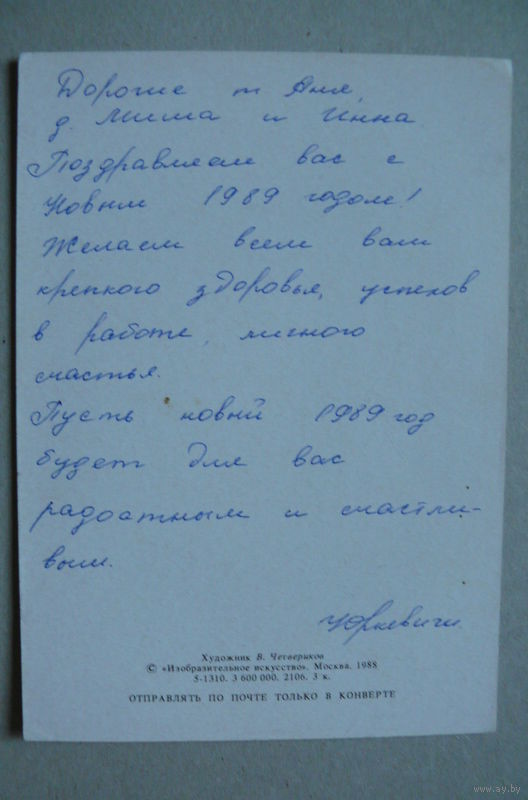 Дорогие т Аня,
д. Миша и Инна
Поздравляем вас с
Новым 1989 годом!
Желаем всем вам
крепкого здоровья, успехов
в работе, личного
счастья.
Пусть новый 1989 год
будет для вас
радостным и счастли-
вым.
Юркевичи
Художник В. Четвериков
© «Изобразительное искусство». Москва. 1988
5-1310. 3 600 000. 2106. 3 к.
ОТПРАВЛЯТЬ ПО ПОЧТЕ ТОЛЬКО В КОНВЕРТЕ
www.ay.by